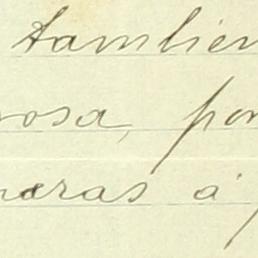 tambien
rosa, por
eras á